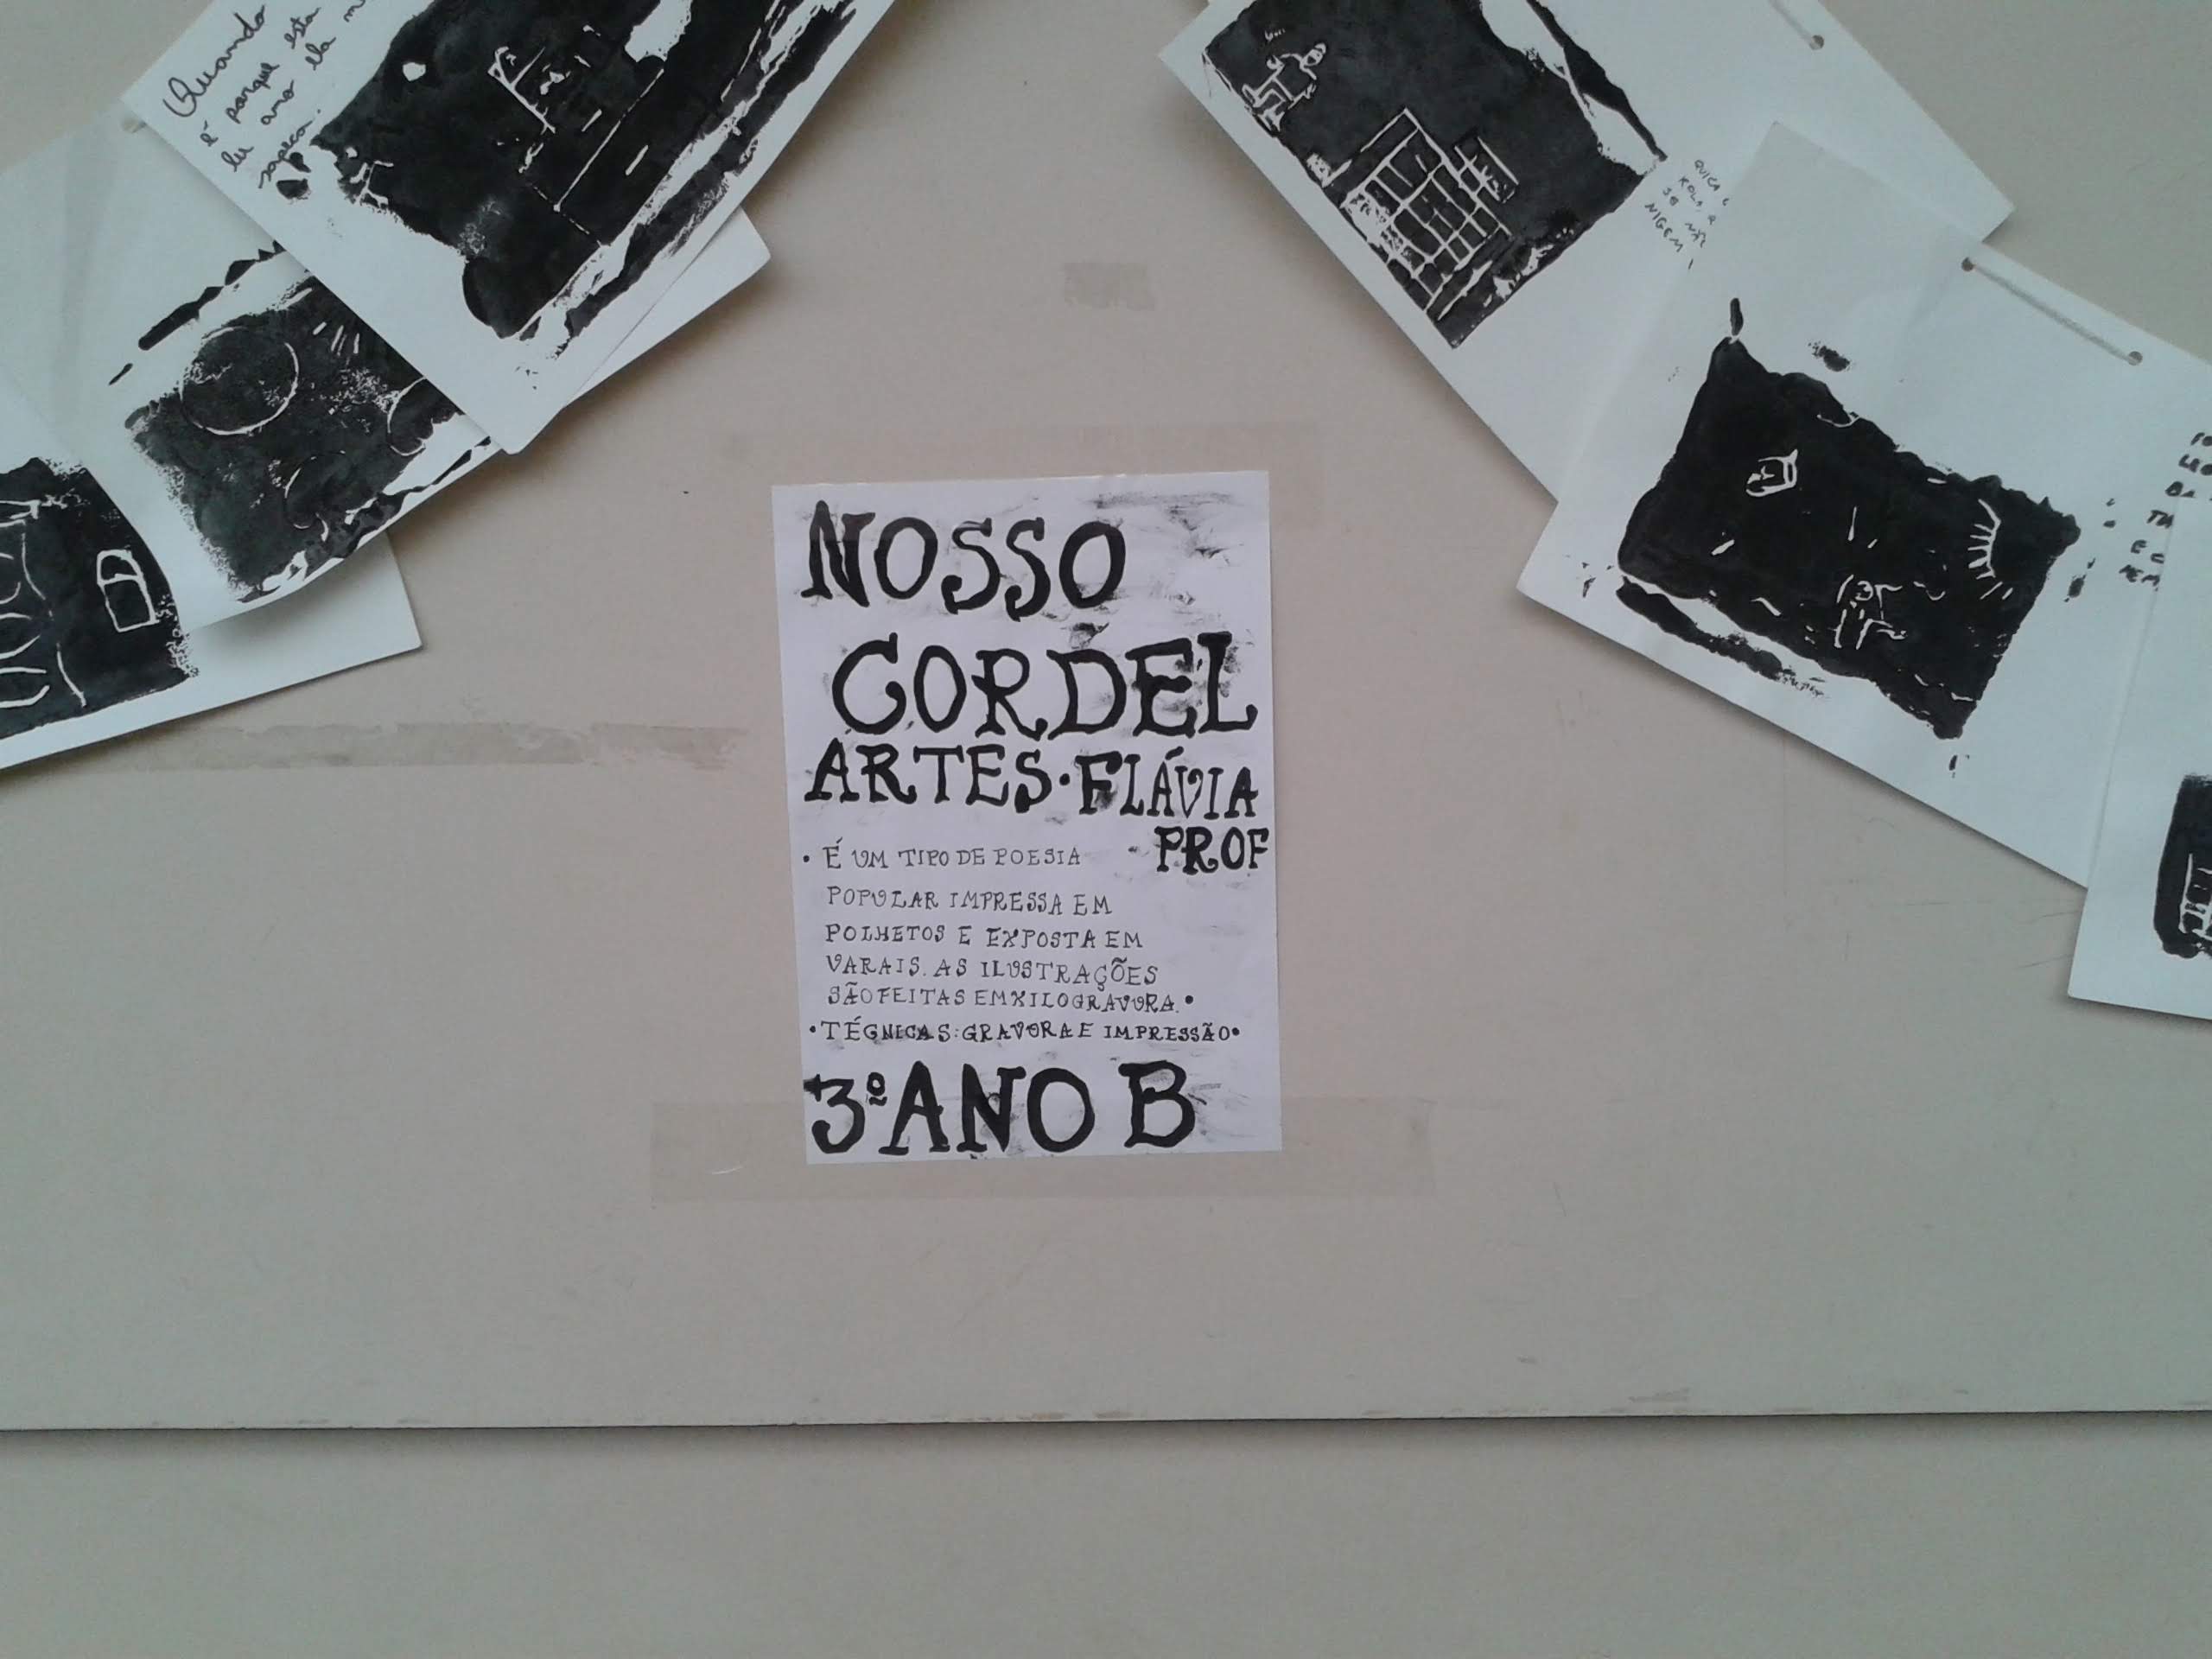 Quando
é porque esta
lu amo ela
sapeca.
NOSSO
CORDEL
ARTES · FLÁVIA
PROF
• É UM TIPO DE POESIA
POPULAR IMPRESSA EM
FOLHETOS E EXPOSTA EM
VARAIS. AS ILUSTRAÇÕES
SÃO FEITAS EM XILOGRAVURA. •
• TÉCNICAS: GRAVURA E IMPRESSÃO •
3º ANO B